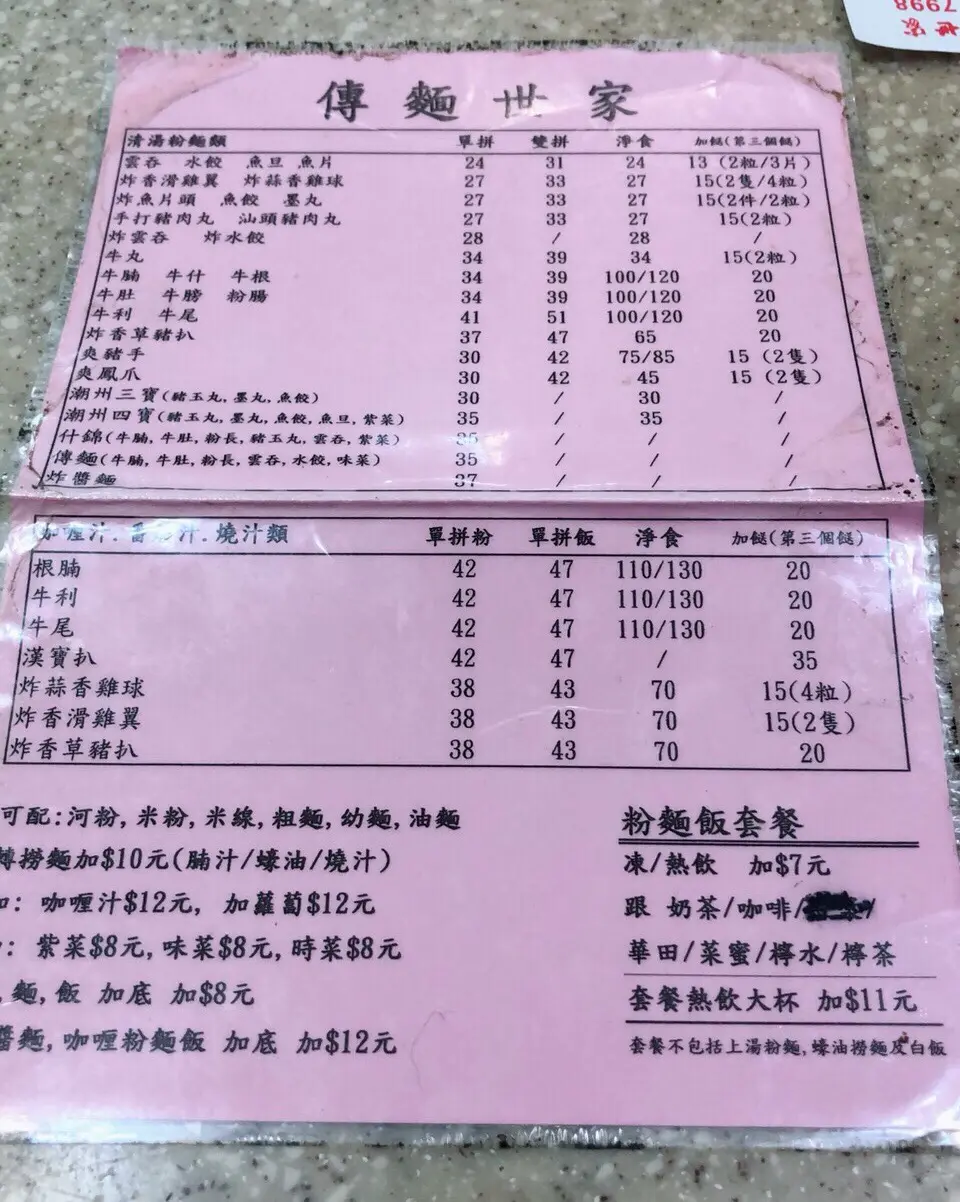 傳麵世家
清湯粉麵類 單拼 雙拼 淨食 加餸(第三個餸)
雲吞 水餃 魚旦 魚片 24 31 24 13 (2粒/3片)
炸香滑雞翼 炸蒜香雞球 27 33 27 15(2隻/4粒)
炸魚片頭 魚餃 墨丸 27 33 27 15(2件/2粒)
手打豬肉丸 汕頭豬肉丸 27 33 27 15(2粒)
炸雲吞 炸水餃 28 / 28 /
牛丸 34 39 34 15(2粒)
牛腩 牛什 牛根 34 39 100/120 20
牛肚 牛膀 粉腸 34 39 100/120 20
牛利 牛尾 41 51 100/120 20
炸香草豬扒 37 47 65 20
爽豬手 30 42 75/85 15 (2隻)
爽鳳爪 30 42 45 15 (2隻)
潮州三寶(豬玉丸,墨丸,魚餃) 30 / 30 /
潮州四寶(豬玉丸,墨丸,魚餃,魚旦,紫菜) 35 / 35 /
什錦(牛腩,牛肚,粉長,豬玉丸,雲吞,紫菜) 35 / / /
傳麵(牛腩,牛肚,粉長,雲吞,水餃,味菜) 35 / / /
炸醬麵 37 / / /
加喱汁.番茄汁.燒汁類 單拼粉 單拼飯 淨食 加餸(第三個餸)
根腩 42 47 110/130 20
牛利 42 47 110/130 20
牛尾 42 47 110/130 20
漢寶扒 42 47 / 35
炸蒜香雞球 38 43 70 15(4粒)
炸香滑雞翼 38 43 70 15(2隻)
炸香草豬扒 38 43 70 20
可配:河粉,米粉,米線,粗麵,幼麵,油麵
轉撈麵加$10元(腩汁/蠔油/燒汁)
: 咖喱汁$12元, 加蘿蔔$12元
: 紫菜$8元,味菜$8元,時菜$8元
,麵,飯 加底 加$8元
醬麵,咖喱粉麵飯 加底 加$12元
粉麵飯套餐
凍/熱飲 加$7元
跟 奶茶/咖啡/
華田/菜蜜/檸水/檸茶
套餐熱飲大杯 加$11元
套餐不包括上湯粉麵,蠔油撈麵及白飯
世家
7998